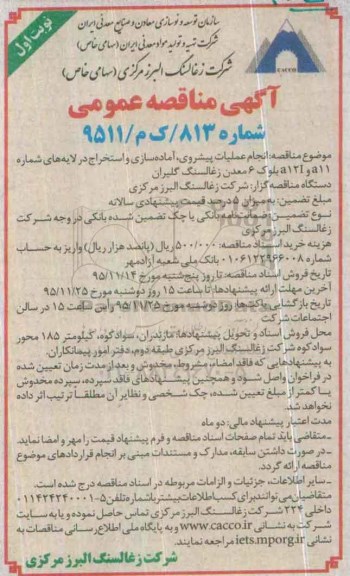 نوبت اول
سازمان توسعه و نوسازی معادن و صنایع معدنی ایران
شرکت تهیه و تولید مواد معدنی ایران (سهامی خاص)
شرکت زغالسنگ البرز مرکزی (سهامی خاص)
CACCO
آگهی مناقصه عمومی
شماره ۸۱۳/ک م/۹۵۱۱
موضوع مناقصه: انجام عملیات پیشروی، آماده‌سازی و استخراج در لایه‌های شماره
a11 و a12I بلوک ۶ معدن زغالسنگ گلیران
دستگاه مناقصه گزار: شرکت زغالسنگ البرز مرکزی
مبلغ تضمین: به میزان ۵ درصد قیمت پیشنهادی سالانه
نوع تضمین: ضمانتنامه بانکی یا چک تضمین شده بانکی در وجه شرکت
زغالسنگ البرز مرکزی
هزینه خرید اسناد مناقصه: ۵۰۰/۰۰۰ ریال (پانصد هزار ریال) واریز به حساب
شماره ۰۱۰۶۱۲۲۹۶۶۰۰۸ بانک ملی شعبه آزادمهر
تاریخ فروش اسناد مناقصه: تا روز پنج‌شنبه مورخ ۹۵/۱۱/۱۴
آخرین مهلت ارائه پیشنهادها: تا ساعت ۱۵ روز دوشنبه مورخ ۹۵/۱۱/۲۵
تاریخ بازگشایی پاکت‌ها: روز دوشنبه مورخ ۹۵/۱۱/۲۵ رأس ساعت ۱۵ در سالن
اجتماعات شرکت
محل فروش اسناد و تحویل پیشنهادها: مازندران، سوادکوه، کیلومتر ۱۸۵ محور
سوادکوه شرکت زغالسنگ البرز مرکزی طبقه دوم، دفتر امور پیمانکاران.
به پیشنهادهایی که فاقد امضاء، مشروط، مخدوش و بعد از مدت زمان تعیین شده
در فراخوان واصل شود و همچنین پیشنهادهای فاقد سپرده، سپرده مخدوش
یا کمتر از مبلغ تعیین شده، چک شخصی و نظایر آن مطلقا ترتیب اثر داده
نخواهد شد.
مدت اعتبار پیشنهاد مالی: دو ماه
ـ متقاضی باید تمام صفحات اسناد مناقصه و فرم پیشنهاد قیمت را مهر و امضا نماید.
ـ در صورت داشتن سابقه، مدارک و مستندات مبنی بر انجام قراردادهای موضوع
مناقصه ارائه گردد.
ـ سایر اطلاعات، جزئیات و الزامات مربوطه در اسناد مناقصه درج شده است.
متقاضیان می‌توانند برای کسب اطلاعات بیشتر با شماره تلفن ۵-۰۱۱۴۲۴۲۴۰۰۰۱
داخلی ۲۲۴ شرکت زغالسنگ البرز مرکزی تماس حاصل نموده و یا به سایت
شرکت به نشانی www.cacco.ir و به پایگاه ملی اطلاع رسانی مناقصات به
نشانی iets.mporg.ir مراجعه نمایند.
شرکت زغالسنگ البرز مرکزی